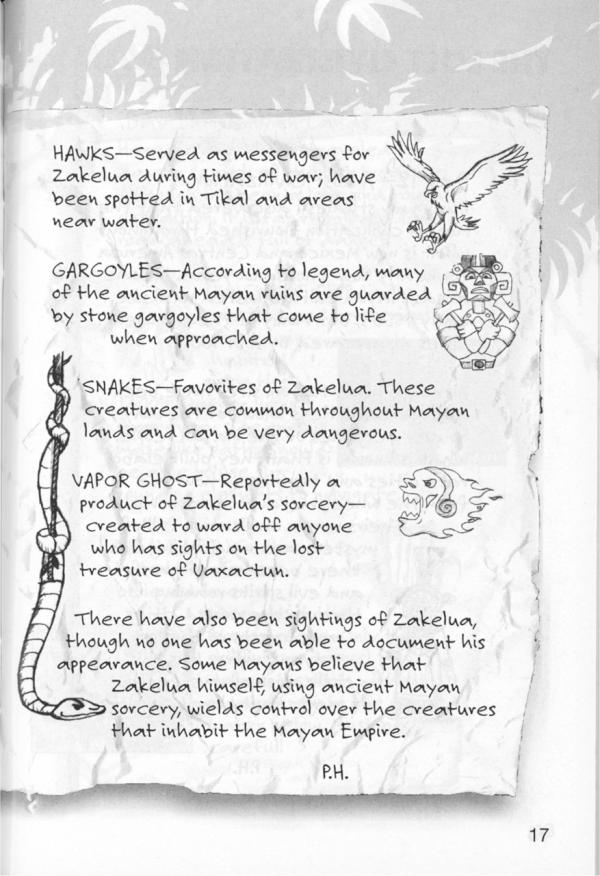 HAWKS—Served as messengers for
Zakelua during times of war; have
been spotted in Tikal and areas
near water.
GARGOYLES—According to legend, many
of the ancient Mayan ruins are guarded
by stone gargoyles that come to life
when approached.
SNAKES—Favorites of Zakelua. These
creatures are common throughout Mayan
lands and can be very dangerous.
VAPOR GHOST—Reportedly a
product of Zakelua's sorcery—
created to ward off anyone
who has sights on the lost
treasure of Uaxactun.
There have also been sightings of Zakelua,
though no one has been able to document his
appearance. Some Mayans believe that
Zakelua himself, using ancient Mayan
sorcery, wields control over the creatures
that inhabit the Mayan Empire.
P.H.
17